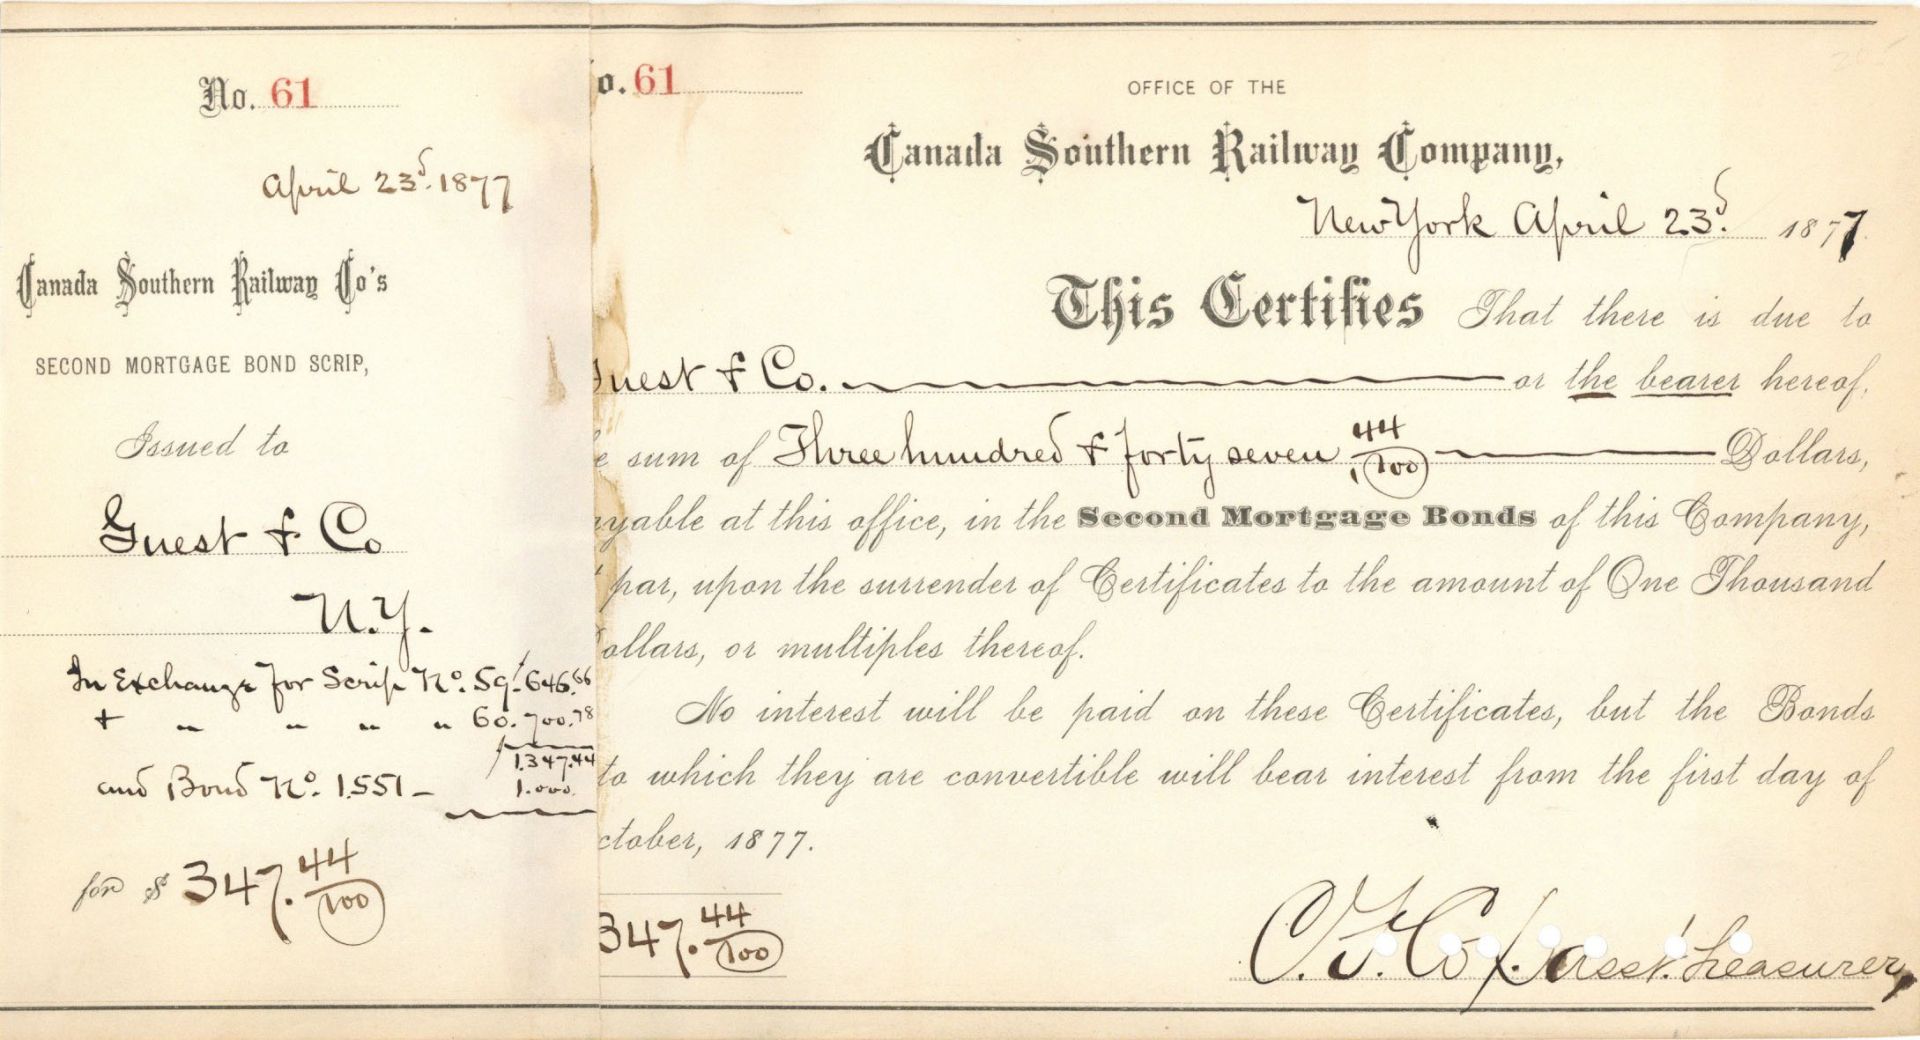 No. 61
April 23d. 1877
Canada Southern Railway Co's
SECOND MORTGAGE BOND SCRIP,
Issued to
Guest & Co
N.Y.
In Exchange for Scrip No. 59. 646.66
+ " " " " 60. 700.78
1.347.44
and Bond No. 1.551 — 1.000.
for $ 347. 44/100
o. 61
OFFICE OF THE
Canada Southern Railway Company,
New York April 23d. 1877.
This Certifies That there is due to
Guest & Co. or the bearer hereof,
e sum of Three hundred & forty seven 44/100 Dollars,
ayable at this office, in the Second Mortgage Bonds of this Company,
t par, upon the surrender of Certificates to the amount of One Thousand
ollars, or multiples thereof.
No interest will be paid on these Certificates, but the Bonds
to which they are convertible will bear interest from the first day of
ctober, 1877.
347. 44/100
C. F. Cox. Asst. Treasurer,